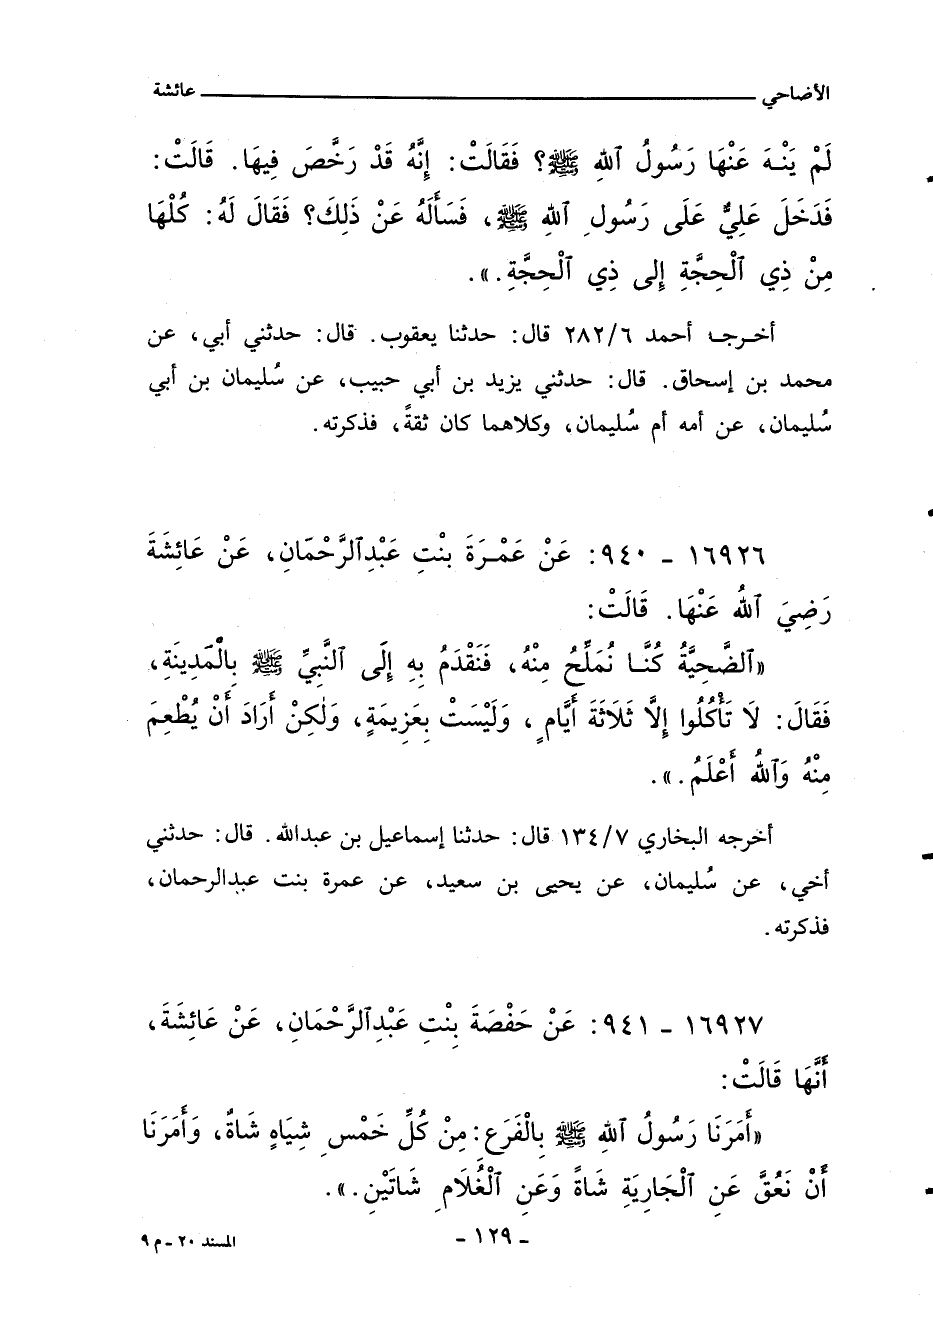 الأضاحي ــــــــــــــــــــــــــــــ عائشة
لَمْ يَنْهَ عَنْهَا رَسُولُ ٱللهِ ﷺ؟ فَقَالَتْ: إِنَّهُ قَدْ رَخَّصَ فِيهَا. قَالَتْ:
فَدَخَلَ عَلِيٌّ عَلَى رَسُولِ ٱللهِ ﷺ، فَسَأَلَهُ عَنْ ذَلِكَ؟ فَقَالَ لَهُ: كُلْهَا
مِنْ ذِي ٱلْحِجَّةِ إِلى ذِي ٱلْحِجَّةِ.».
أخرجه أحمد ٢٨٢/٦ قال: حدثنا يعقوب. قال: حدثني أبي، عن
محمد بن إسحاق. قال: حدثني يزيد بن أبي حبيب، عن سُليمان بن أبي
سُليمان، عن أمه أم سُليمان، وكلاهما كان ثقةً، فذكرته.
١٦٩٢٦ - ٩٤٠: عَنْ عَمْرَةَ بِنْتِ عَبْدِٱلرَّحْمَانِ، عَنْ عَائِشَةَ
رَضِيَ ٱللهُ عَنْهَا. قَالَتْ:
«ٱلضَّحِيَّةُ كُنَّا نُمَلِّحُ مِنْهُ، فَنَقْدَمُ بِهِ إِلَى ٱلنَّبِيِّ ﷺ بِٱلْمَدِينَةِ،
فَقَالَ: لَا تَأْكُلُوا إِلَّا ثَلَاثَةَ أَيَّامٍ، وَلَيْسَتْ بِعَزِيمَةٍ، وَلٰكِنْ أَرَادَ أَنْ يُطْعِمَ
مِنْهُ وَٱللهُ أَعْلَمُ.».
أخرجه البخاري ١٣٤/٧ قال: حدثنا إسماعيل بن عبدالله. قال: حدثني
أخي، عن سُليمان، عن يحيى بن سعيد، عن عمرة بنت عبدالرحمان،
فذكرته.
١٦٩٢٧ - ٩٤١: عَنْ حَفْصَةَ بِنْتِ عَبْدِٱلرَّحْمَانِ، عَنْ عَائِشَةَ،
أَنَّهَا قَالَتْ:
«أَمَرَنَا رَسُولُ ٱللهِ ﷺ بِالْفَرَعِ: مِنْ كُلِّ خَمْسِ شِيَاهٍ شَاةٌ، وَأَمَرَنَا
أَنْ نَعُقَّ عَنِ ٱلْجَارِيَةِ شَاةً وَعَنِ ٱلْغُلَامِ شَاتَيْنِ.».
- ١٢٩ -
المسند ٢٠ - م ٩